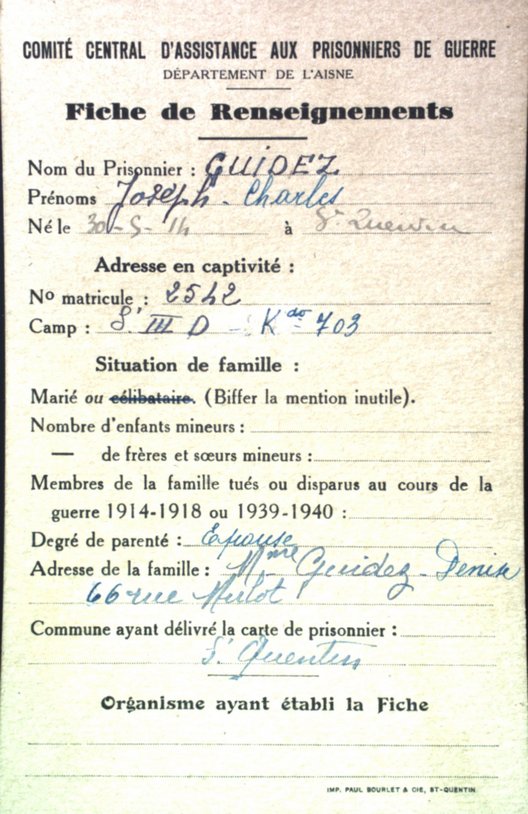 COMITÉ CENTRAL D'ASSISTANCE AUX PRISONNIERS DE GUERRE
DÉPARTEMENT DE L'AISNE
Fiche de Renseignements
Nom du Prisonnier : GUIDEZ
Prénoms Joseph - Charles
Né le 30-5-14 à St Quentin
Adresse en captivité :
No matricule : 2542
Camp : St III D - Kdo 703
Situation de famille :
Marié ou célibataire. (Biffer la mention inutile).
Nombre d'enfants mineurs :
— de frères et sœurs mineurs :
Membres de la famille tués ou disparus au cours de la
guerre 1914-1918 ou 1939-1940 :
Degré de parenté : Epouse
Adresse de la famille : Mme Guidez-Denin
66 rue Mulot
Commune ayant délivré la carte de prisonnier :
St Quentin
Organisme ayant établi la Fiche
IMP. PAUL BOURLET & CIE, ST-QUENTIN